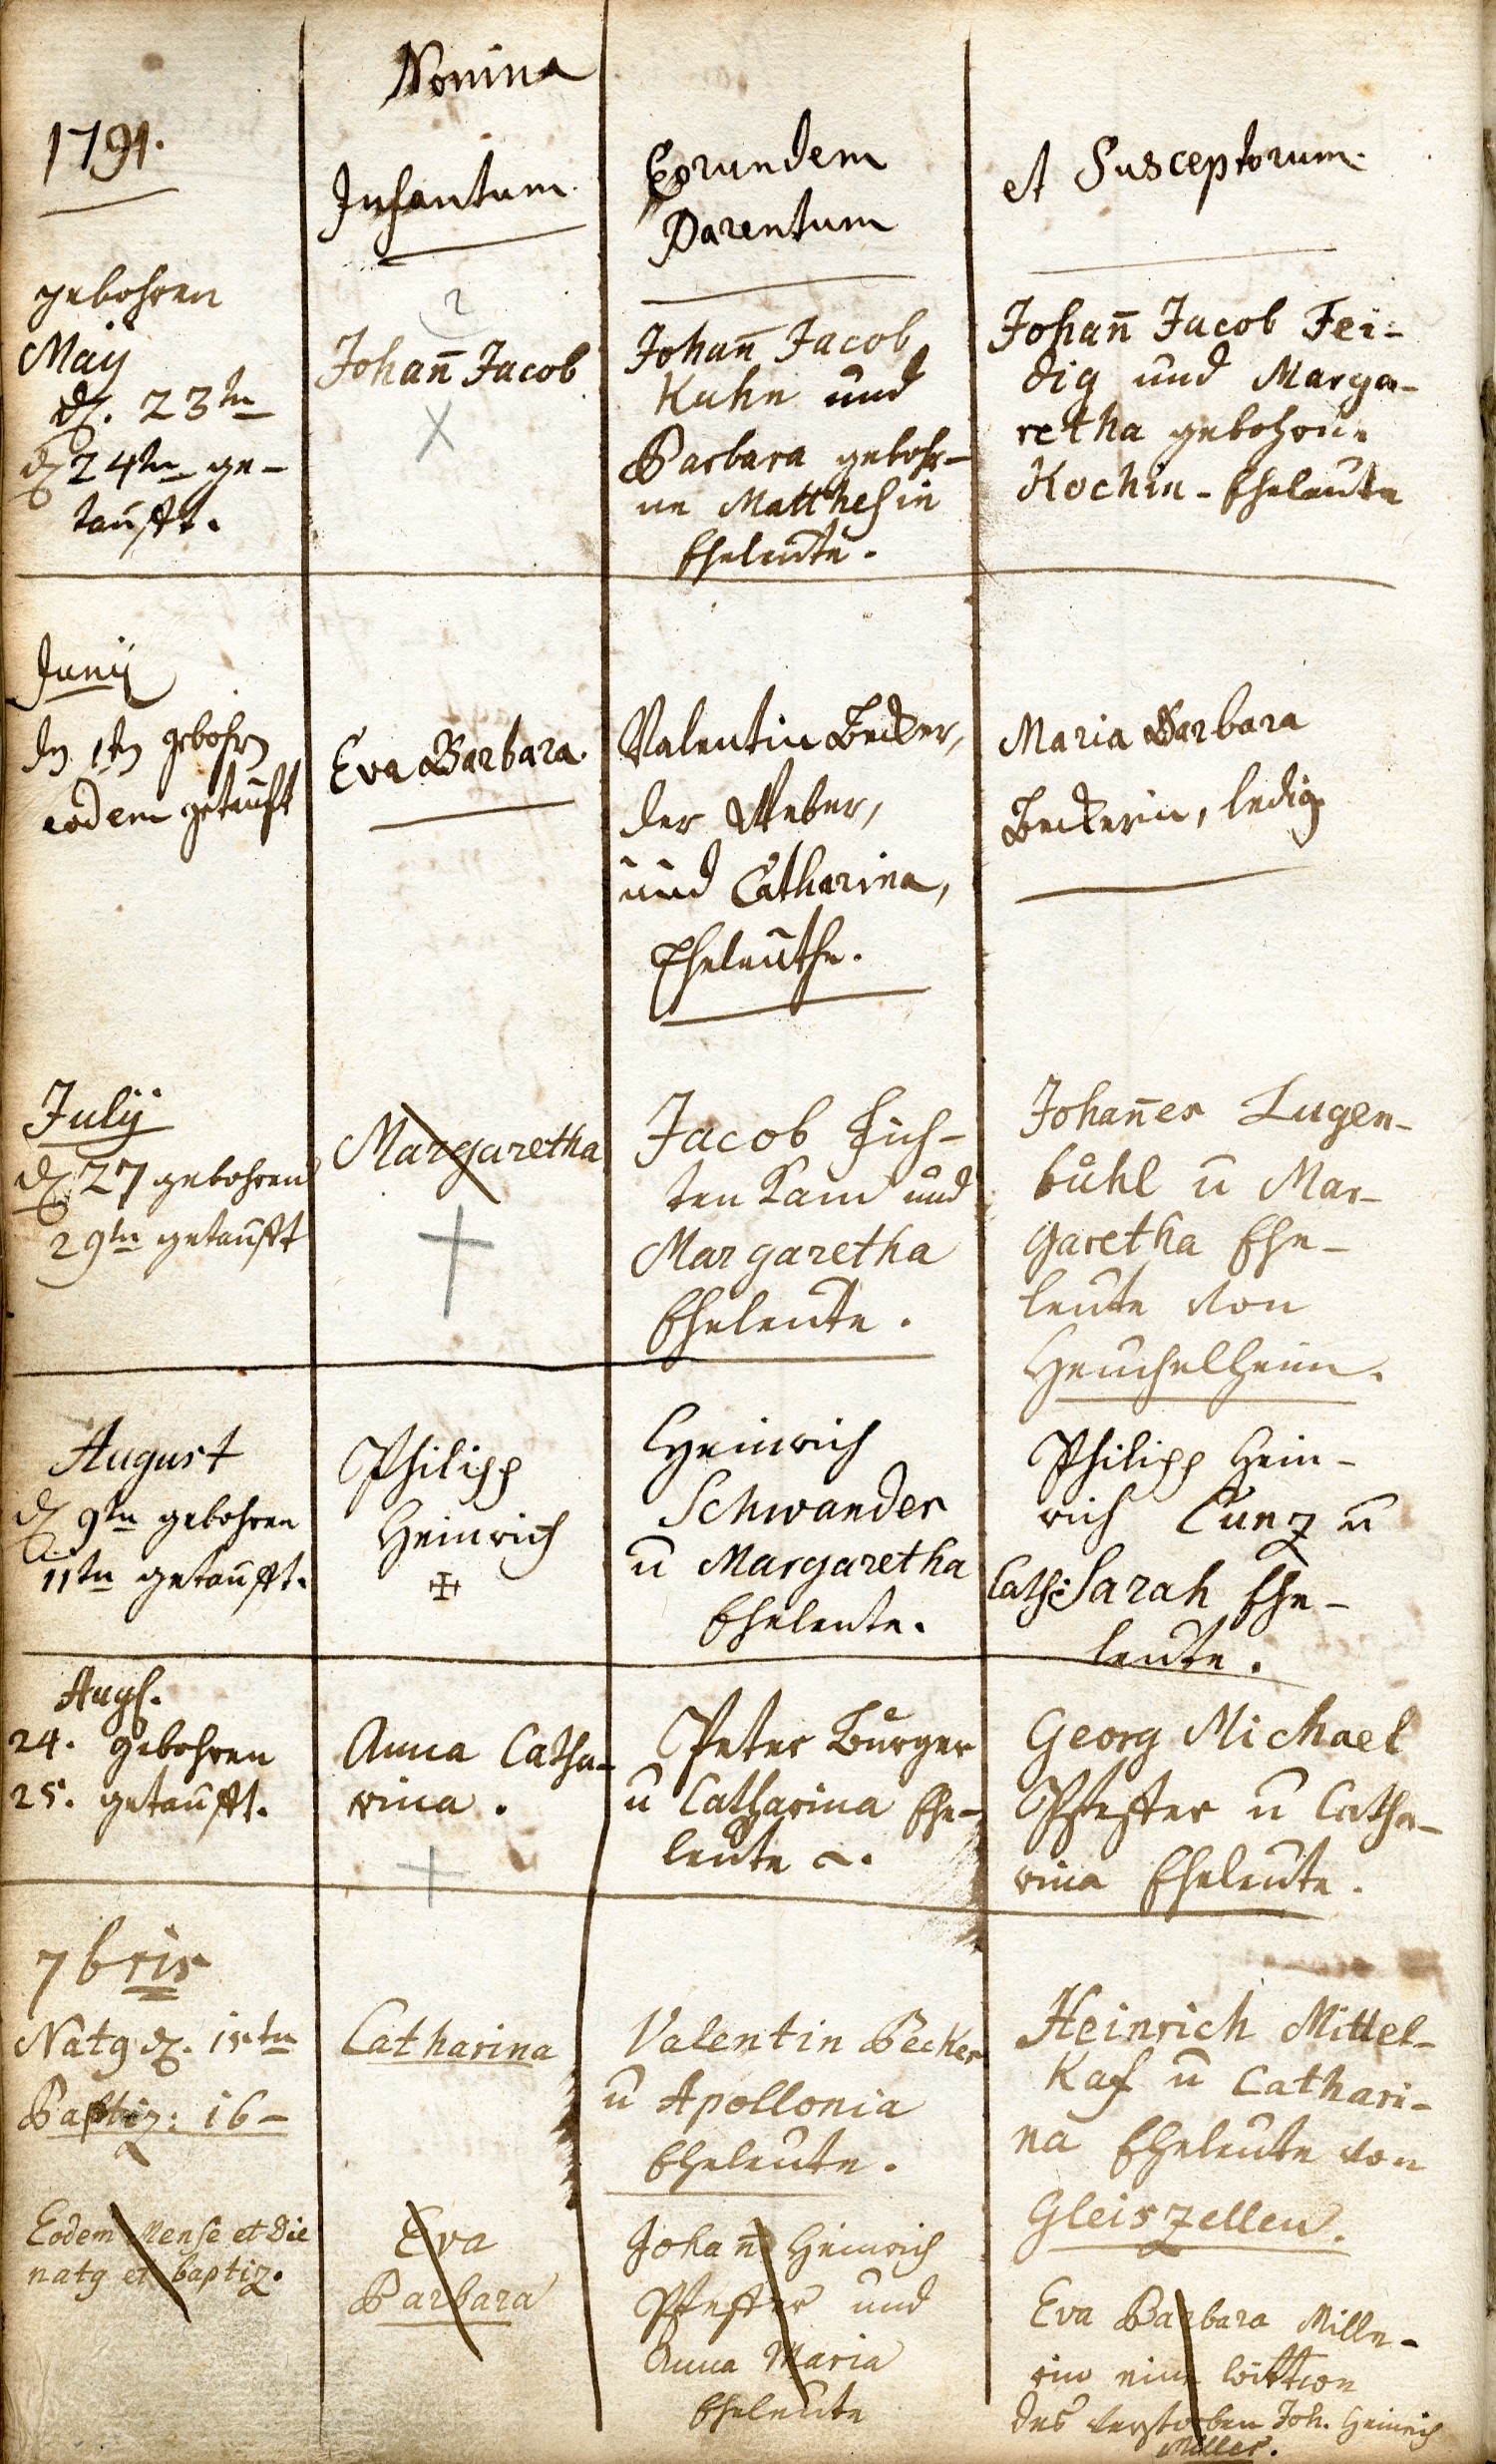 1791.
Nomina
Infantum.
Eorundem
Parentum
et Susceptorum.
gebohren
Maÿ
d. 23ten
d 24ten ge-
taufft.
Johan̄ Jacob
Johan̄ Jacob
Kuhn und
Barbara gebohr-
ne Matthesin
Eheleute.
Johan̄ Jacob Fei-
dig und Marga-
retha gebohrne
Kochin - Eheleute
Junÿ
den 1ten gebohrn
eodem getaufft
Eva Barbara.
Valentin Becker,
der Weber,
und Catharina,
Eheleuthe.
Maria Barbara
Beckerin, ledig
Julÿ
d 27 gebohren
29ten getaufft
Margaretha
Jacob Fich-
ten Kam und
Margaretha
Eheleute.
Johan̄es Lugen-
bůhl ū Mar-
garetha Ehe-
leute von
Heuchelheim.
August
d 9ten gebohren
11ten getaufft.
Philipp
Heinrich
Heinrich
Schwander
ū Margaretha
Eheleute.
Philipp Hein-
rich Cunz ū
Cath: Sarah Ehe-
leute.
Augs.
24. gebohren
25. getaufft.
Anna Catha-
rina.
Peter Bůrger
ū Catharina Ehe-
leute
Georg Michael
Pfeffer ū Catha-
rina Eheleute.
7bris
Natg d. 15ten
Baptiz: 16-
Catharina
Valentin Becker
ū Apollonia
Eheleute.
Heinrich Mittel-
Kaf ū Cathari-
na Eheleute von
Gleiszellen.
Eodem Mense et Die
natg et baptiz.
Eva
Barbara
Johan̄ Heinrich
Pfeffer und
Anna Maria
Eheleute
Eva Barbara Mille-
rin eine Wittwe
des verstorben Joh. Heinrich
Miller.